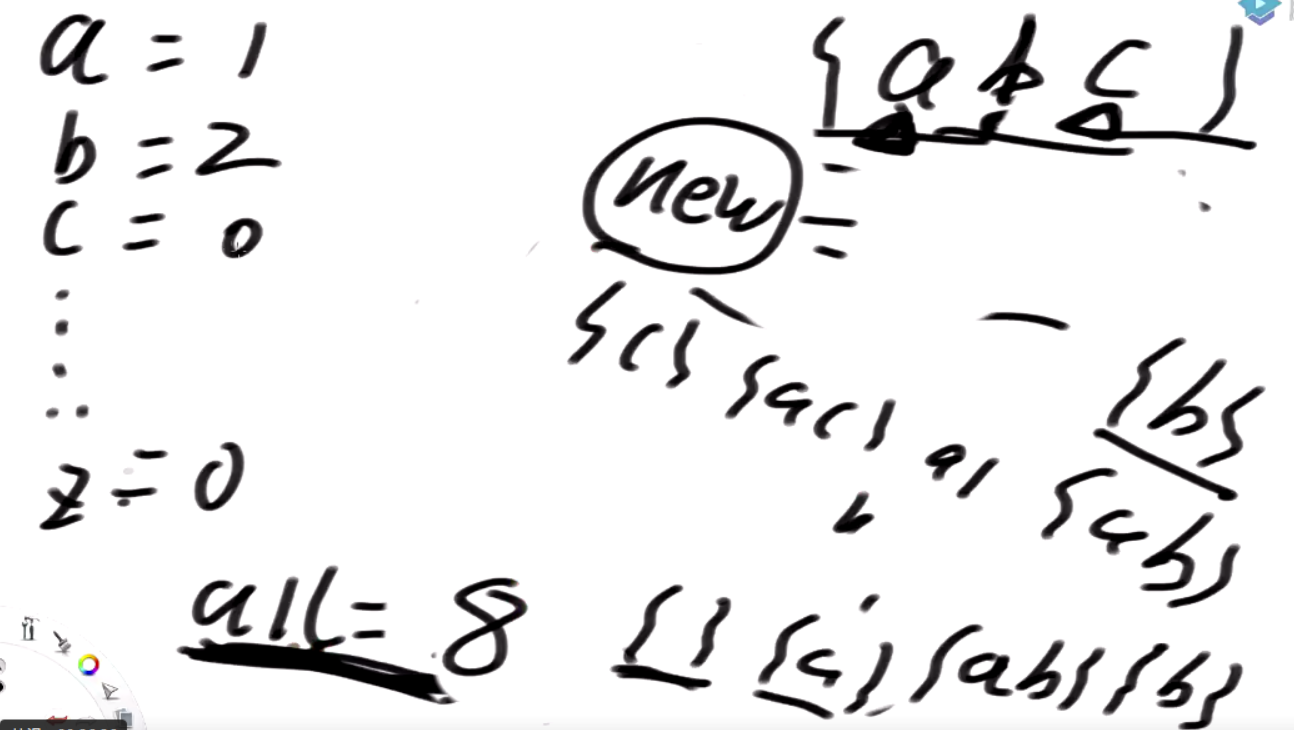 a = 1
b = 2
c = 0
z = 0
all = 8
{ a b c }
new =
{c} {ac}
{b}
{ab}
{ } {a} {ab} {b}